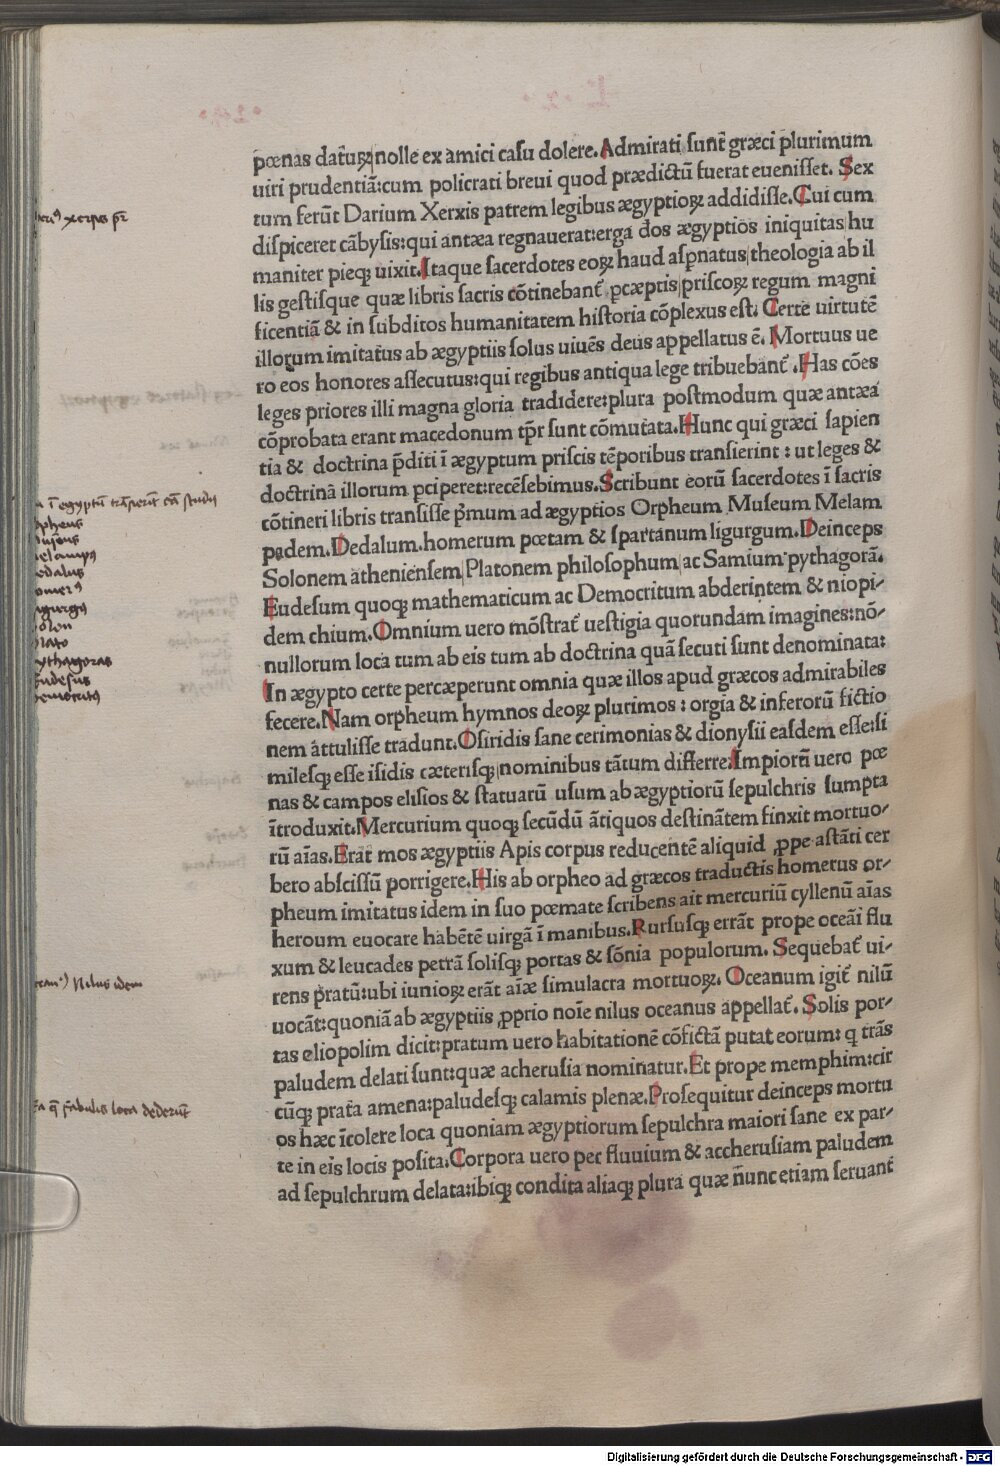 pœnas daturꝫ nolle ex amici casu dolere. Admirati sunt græci plurimum
uiri prudentiã: cum policrati breui quod prædictũ fuerat euenisset. Sex
tum ferũt Darium Xerxis patrem legibus ægyptioꝝ addidisse. Cui cum
dispiceret cãbysis: qui antæa regnauerat: erga dos ægyptios iniquitas hu
maniter pieqꝫ uixit. Itaque sacerdotes eoꝝ haud aspnatus theologia ab il
lis gestisque quæ libris sacris cõtinebant̃ pcæptis priscoꝝ regum magni
ficentiã & in subditos humanitatem historia cõplexus est. Certe uirtutẽ
illorum imitatus ab ægyptiis solus uiuẽs deus appellatus ẽ. Mortuus ue
ro eos honores assecutus: qui regibus antiqua lege tribuebant̃. Has cões
leges priores illi magna gloria tradidere: plura postmodum quæ antæa
cõprobata erant macedonum tp̃r sunt cõmutata. Hunc qui græci sapien
tia & doctrina p̃diti ĩ ægyptum priscis tẽporibus transierint: ut leges &
doctrinã illorum pciperet: recẽsebimus. Scribunt eorũ sacerdotes ĩ sacris
cõtineri libris transisse p̃mum ad ægyptios Orpheum Museum Melam
padem. Dedalum. homerum pœtam & spartanum ligurgum. Deinceps
Solonem atheniensem Platonem philosophum ac Samium pythagorã.
Eudesum quoqꝫ mathematicum ac Democritum abderintem & niopi-
dem chium. Omnium uero mõstrat̃ uestigia quorundam imagines: nõ-
nullorum loca tum ab eis tum ab doctrina quã secuti sunt denominata:
In ægypto certe percæperunt omnia quæ illos apud græcos admirabiles
fecere. Nam orpheum hymnos deoꝝ plurimos: orgia & inferorũ fictio
nem attulisse tradunt. Osiridis sane cerimonias & dionysii easdem esse: si
milesqꝫ esse isidis cæterisqꝫ nominibus tãtum differre: Impiorũ uero pœ
nas & campos elisios & statuarũ usum ab ægyptiorũ sepulchris sumpta
ĩtroduxit. Mercurium quoqꝫ secũdũ ãtiquos destinãtem finxit mortuo-
rũ aĩas. Erat mos ægyptiis Apis corpus reducentẽ aliquid ꝓpe astãti cer
bero abscissũ porrigere. His ab orpheo ad græcos traductis homerus or-
pheum imitatus idem in suo pœmate scribens ait mercuriũ cyllenũ aĩas
heroum euocare habẽtẽ uirgã ĩ manibus. Rursusqꝫ errãt prope oceãi flu
xum & leucades petrã solisqꝫ portas & sõnia populorum. Sequebat̃ ui-
rens pratũ: ubi iunioꝝ erãt aĩæ simulacra mortuoꝝ. Oceanum igit̃ nilũ
uocãt: quoniã ab ægyptiis ꝓprio noĩe nilus oceanus appellat̃. Solis por-
tas eliopolim dicit: pratum uero habitationẽ cõfictã putat eorum: q trãs
paludem delati sunt: quæ acherusia nominatur. Et prope memphim: cir
cũqꝫ prata amena: paludesqꝫ calamis plenæ. Prosequitur deinceps mortu
os hæc ĩcolere loca quoniam ægyptiorum sepulchra maiori sane ex par-
te in eis locis posita. Corpora uero per fluuium & accherusiam paludem
ad sepulchrum delata: ibiqꝫ condita aliaqꝫ plura quæ nũnc etiam seruant̃
xerxis pr̃
ĩ egyptũ trãsierũt cã studii
Nilus idem
fabulis loca dederũt
Digitalisierung gefördert durch die Deutsche Forschungsgemeinschaft - DFG